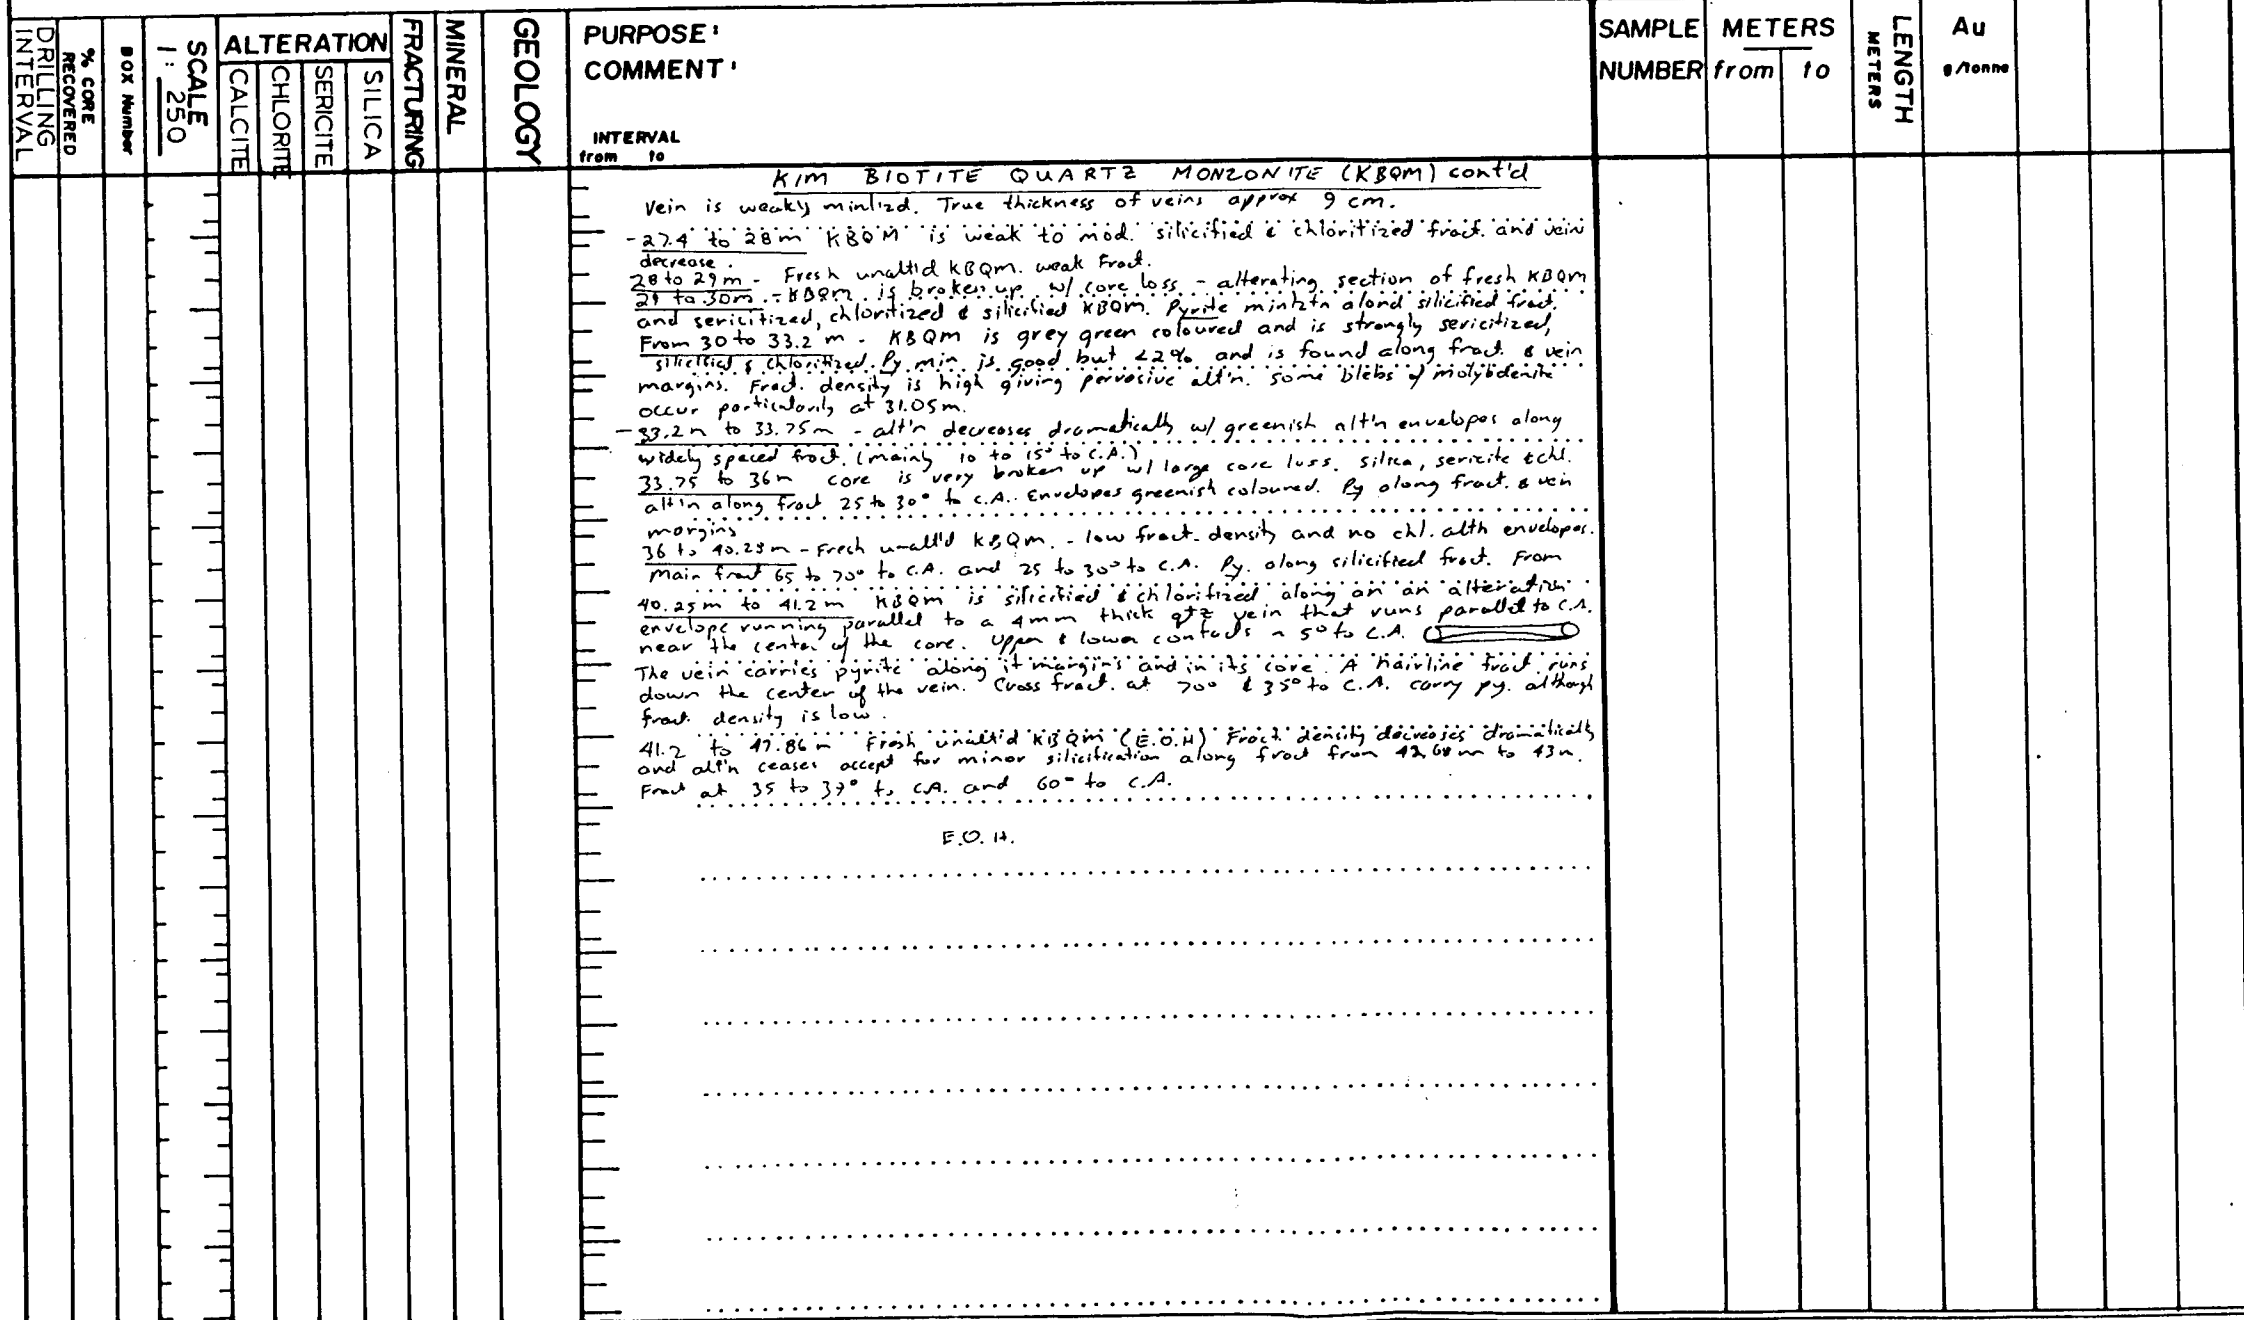 DRILLING INTERVAL
% CORE RECOVERED
BOX Number
SCALE 1: 250
ALTERATION
CALCITE
CHLORITE
SERICITE
SILICA
FRACTURING
MINERAL
GEOLOGY
PURPOSE:
COMMENT:
INTERVAL
from to
SAMPLE NUMBER
METERS
from to
LENGTH METERS
Au
g/tonne
KIM BIOTITE QUARTZ MONZONITE (KBQM) cont'd
Vein is weakly minlizd. True thickness of veins approx 9 cm.
- 27.4 to 28m KBQM is weak to mod. silicified & chloritized fract. and vein
decrease.
28 to 29m - Fresh unalt'd KBQm. weak Fract.
29 to 30m - KBQm is broken up w/ core loss - alterating section of fresh KBQm
and sericitized, chloritized & silicified KBQm. Pyrite minlztn alond silicified fract.
From 30 to 33.2 m - KBQm is grey green coloured and is strongly sericitized,
silicified & chloritized. Py min. is good but <2% and is found along fract. & vein
margins. Fract. density is high giving pervasive alt'n. Some blebs of molybdenite
occur particularly at 31.05m.
- 33.2m to 33.75m - alt'n decreases dramatically w/ greenish alt'n envelopes along
widely spaced fract. (mainly 10 to 15° to C.A.)
33.75 to 36m core is very broken up w/ large core loss. silica, sericite & chl.
alt'n along fract 25 to 30° to C.A.. Envelopes greenish coloured. Py along fract. & vein
margins
36 to 40.25m - Fresh unalt'd KBQm. - low fract. density and no chl. altn envelopes.
Main fract 65 to 70° to C.A. and 25 to 30° to C.A. Py. along silicified fract. From
40.25m to 41.2m KBQm is silicified & chloritized along an an alteration
envelope running parallel to a 4mm thick qtz vein that runs parallel to C.A.
near the center of the core. Upper & lower contacts ~ 5° to C.A.
The vein carries pyrite along it margins and in its core. A hairline fract. runs
down the center of the vein. Cross fract. at 70° & 35° to C.A. carry py. although
fract. density is low.
41.2 to 47.86m Fresh unalt'd KBQm (E.O.H) Fract. density decreases dramatically
and alt'n ceases accept for minor silicification along fract from 42.68m to 43m.
Fract at 35 to 37° to C.A. and 60° to C.A.
E.O.H.